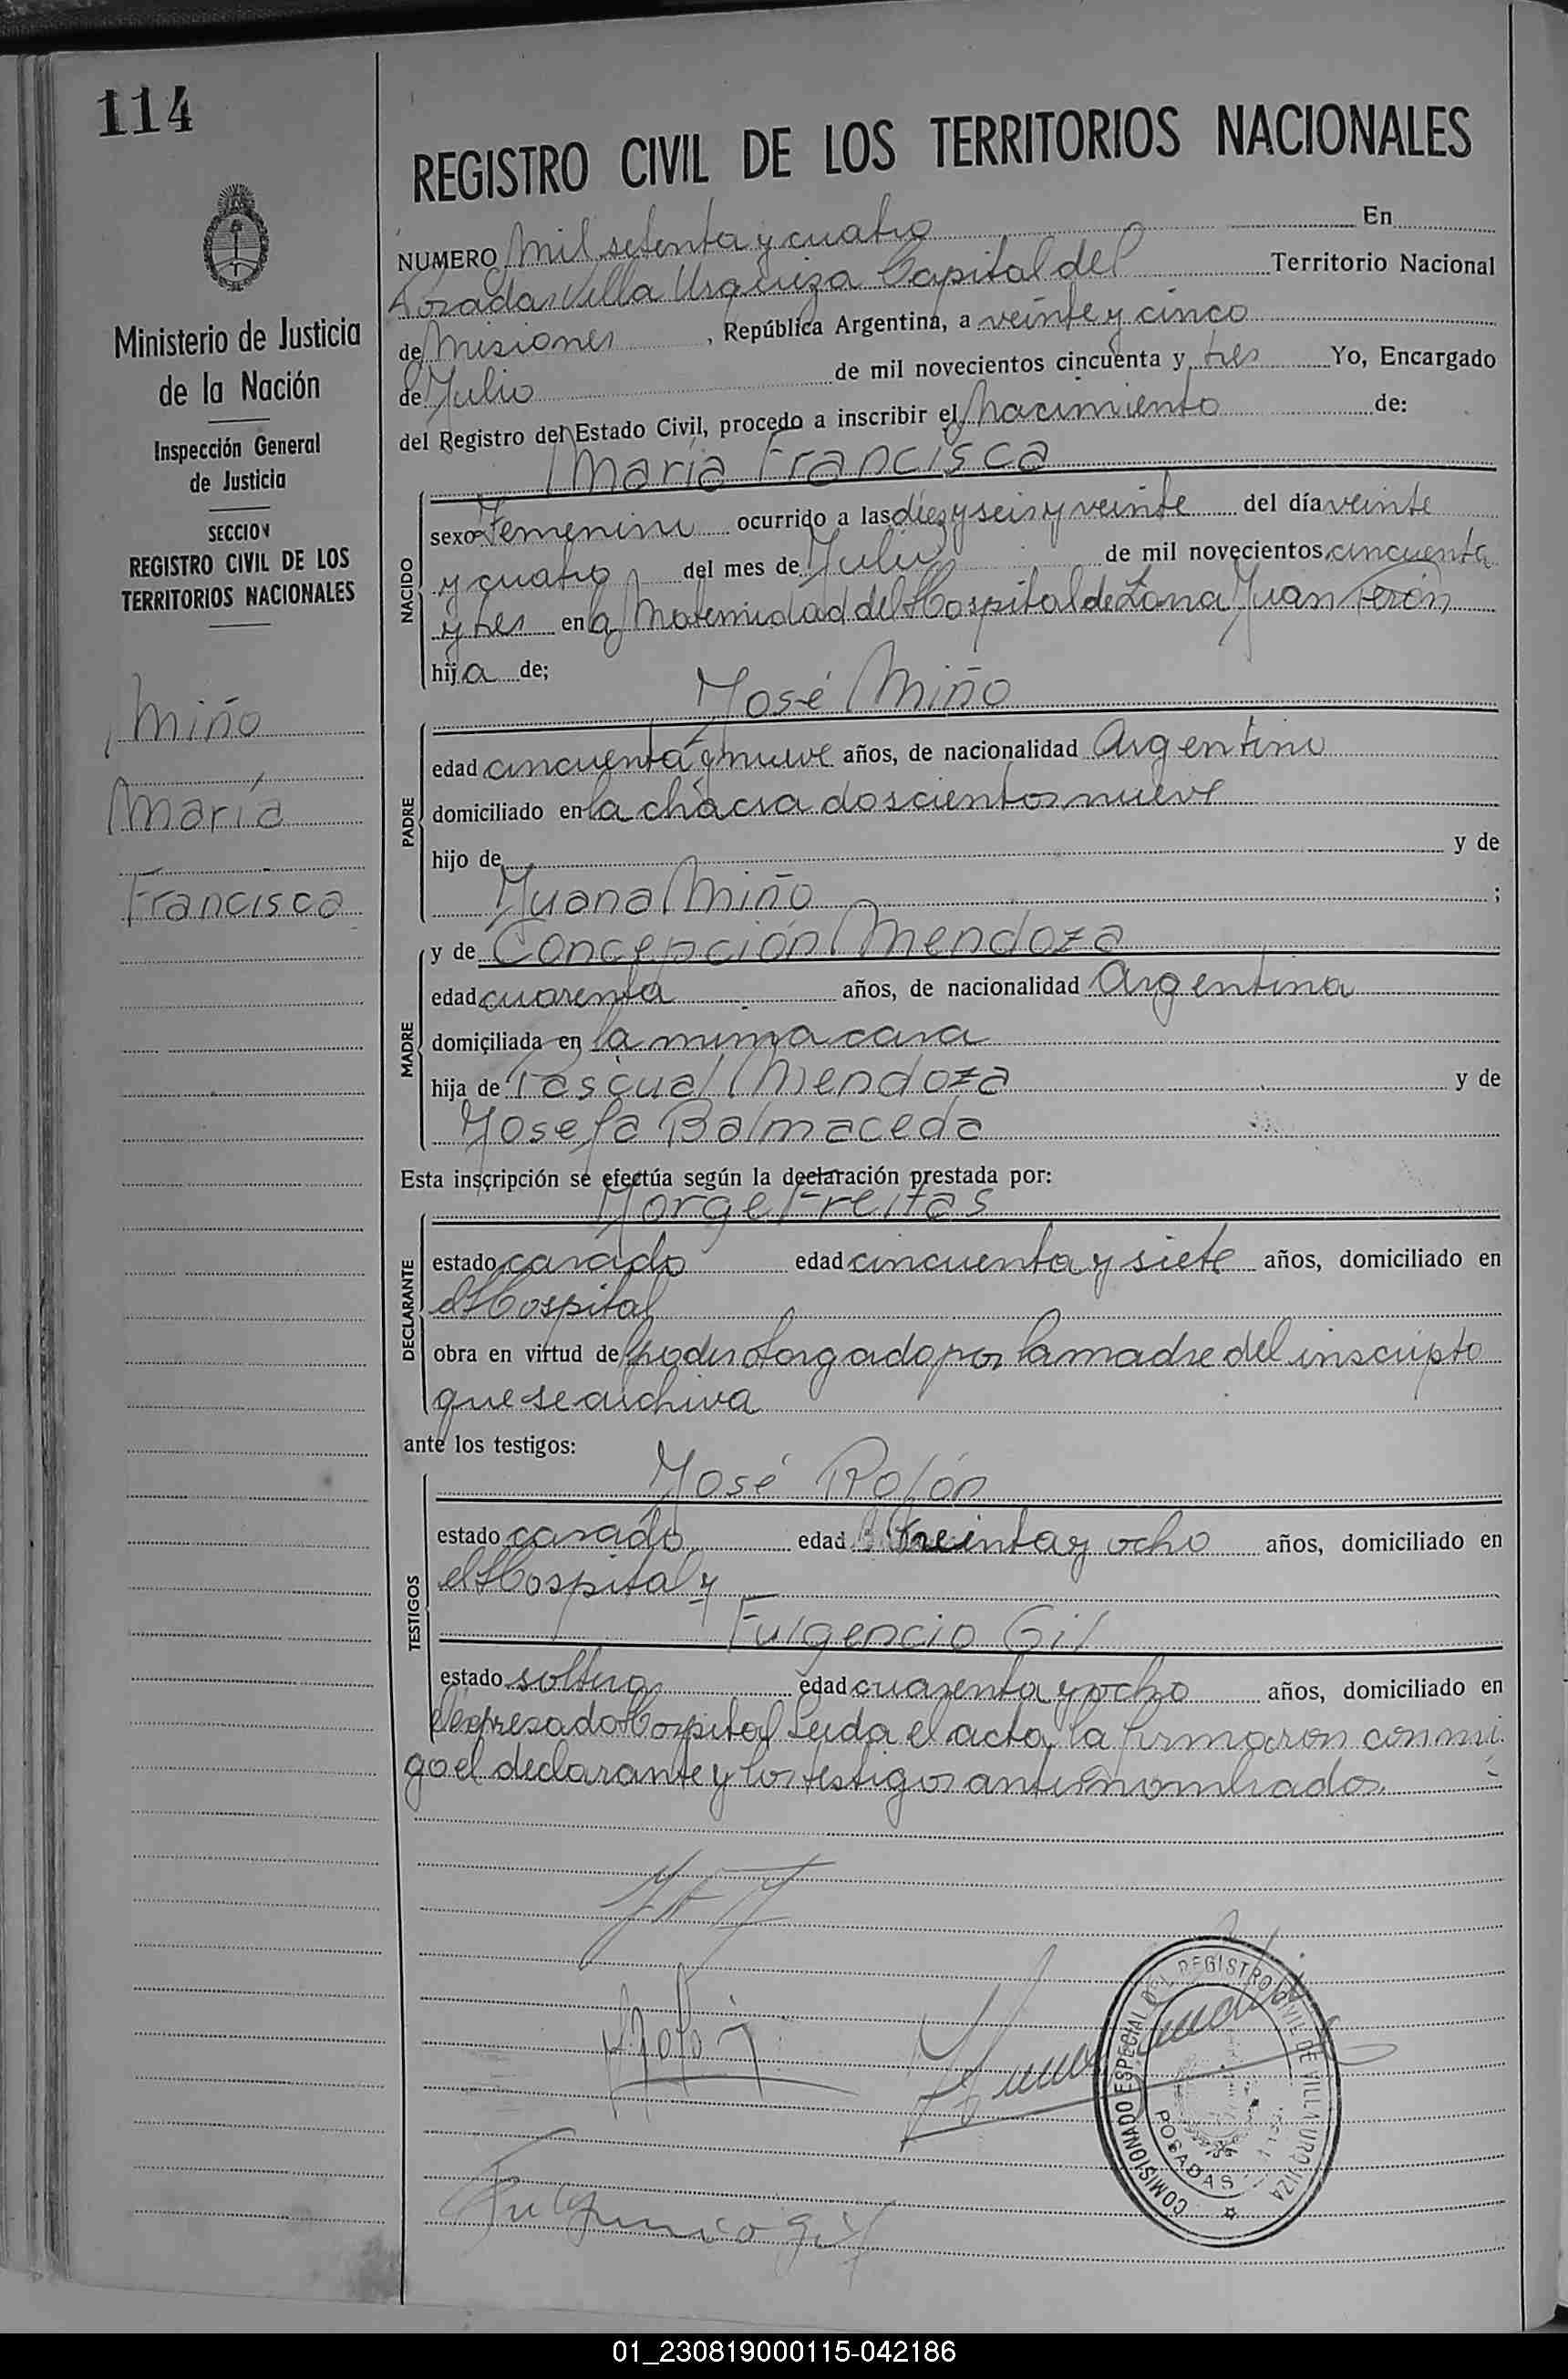 114
REGISTRO CIVIL DE LOS TERRITORIOS NACIONALES
Ministerio de Justicia
de la Nación
Inspección General
de Justicia
SECCION
REGISTRO CIVIL DE LOS
TERRITORIOS NACIONALES
Miño
María
Francisca
NUMERO Mil setenta y cuatro En
Posadas Villa Urquiza Capital del Territorio Nacional
de Misiones, República Argentina, a veinte y cinco
de Julio de mil novecientos cincuenta y tres Yo, Encargado
del Registro del Estado Civil, procedo a inscribir el Nacimiento de:
María Francisca
NACIDO
sexo Femenino ocurrido a las diez y seis y veinte del día veinte
y cuatro del mes de Julio de mil novecientos cincuenta
y tres en la Maternidad del Hospital de Zona Juan Perón
hija de;
José Miño
PADRE
edad cincuenta y nueve años, de nacionalidad Argentino
domiciliado en la chacra doscientos nueve
hijo de y de
Juana Miño ;
y de Concepción Mendoza
MADRE
edad cuarenta años, de nacionalidad Argentina
domiciliada en la misma casa
hija de Pascual Mendoza y de
Josefa Balmaceda
Esta inscripción se efectúa según la declaración prestada por:
Jorge Freitas
DECLARANTE
estado casado edad cincuenta y siete años, domiciliado en
el Hospital
obra en virtud del poder otorgado por la madre del inscripto
que se archiva
ante los testigos:
José Rolón
TESTIGOS
estado casado edad treinta y ocho años, domiciliado en
el Hospital y
Fulgencio Gil
estado soltero edad cuarenta y ocho años, domiciliado en
el expresado Hospital Leida el acta la firmaron conmi
go el declarante y los testigos antes nombrados.
J Rolon
COMISIONADO ESPECIAL DEL REGISTRO CIVIL DE VILLA URQUIZA
POSADAS
Fulgencio Gil
01_230819000115-042186